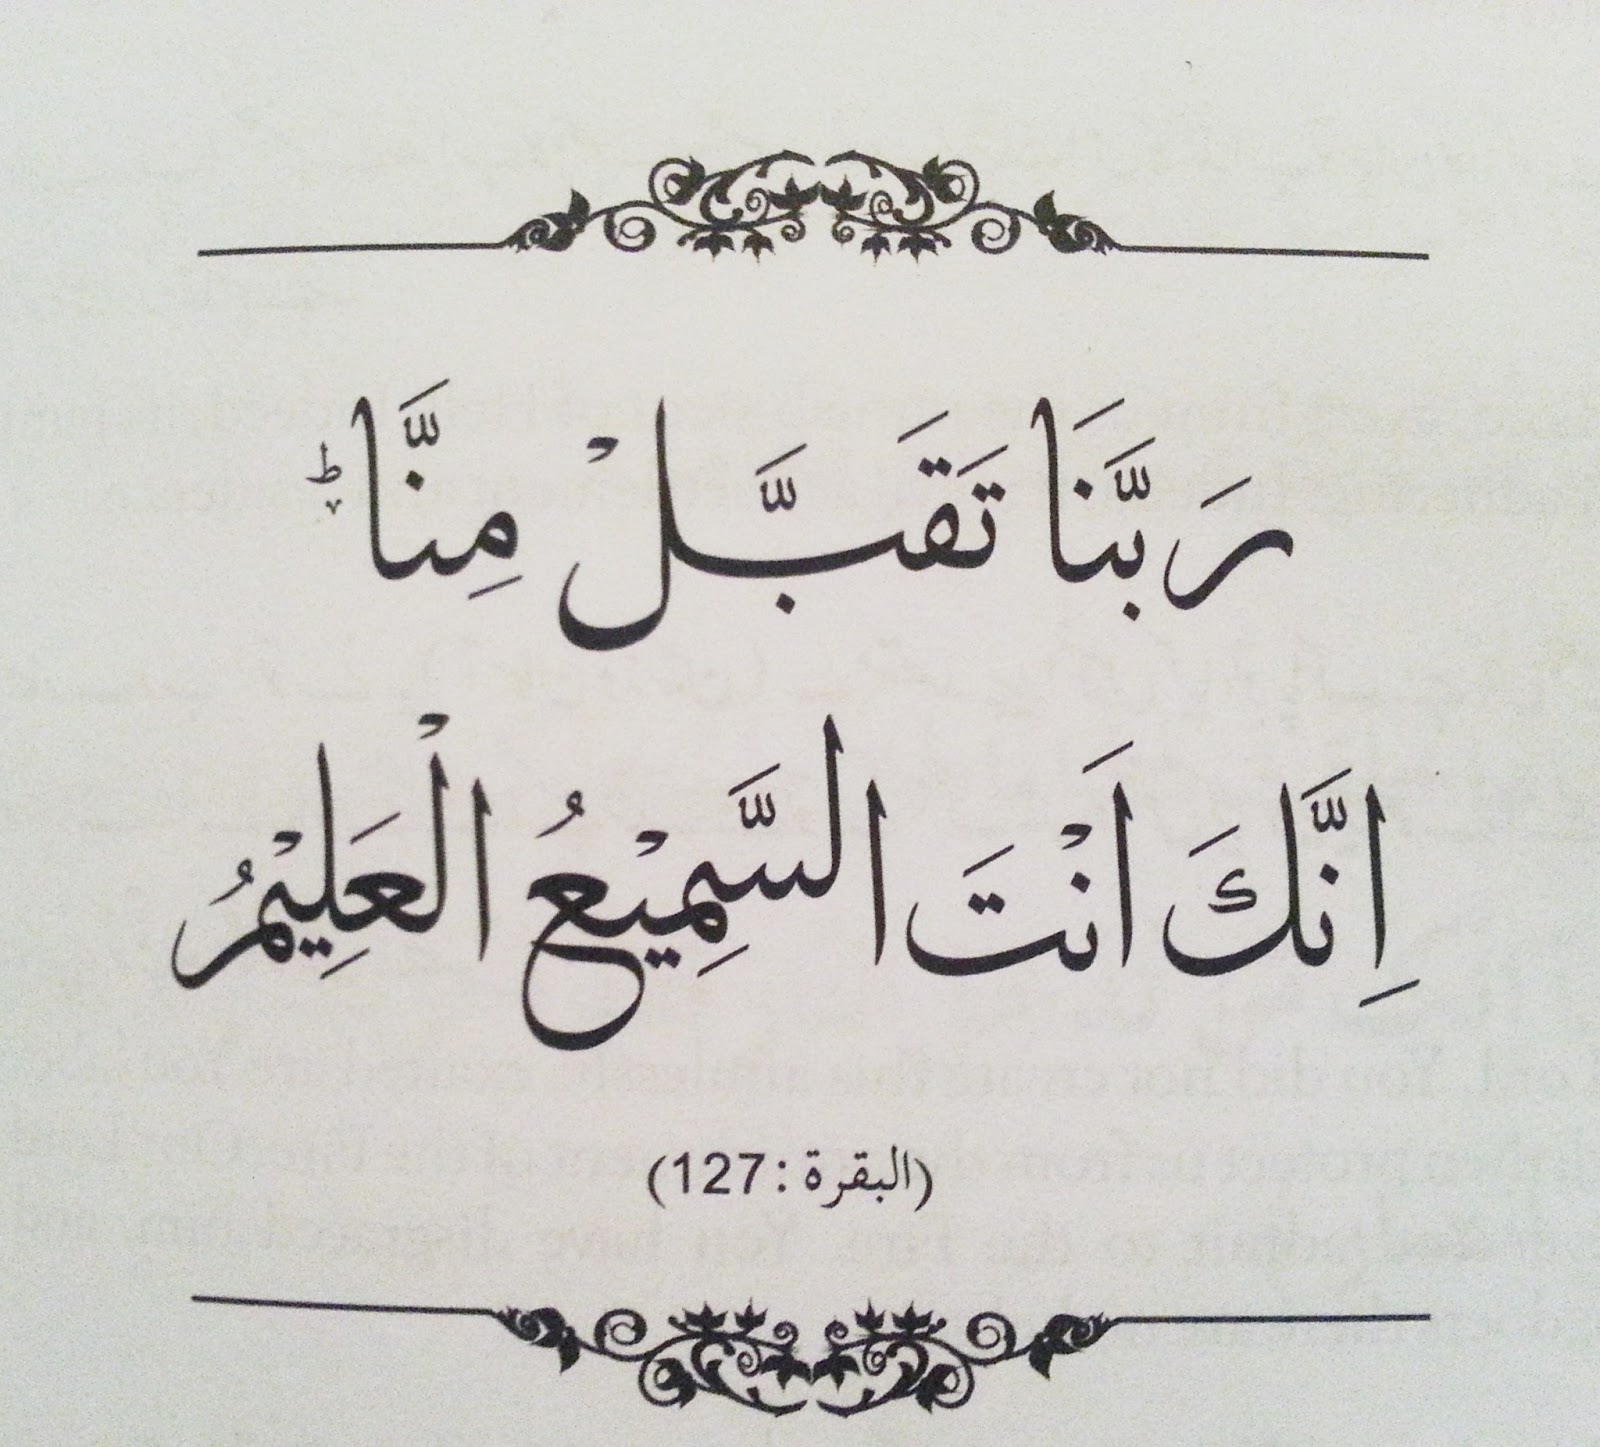 رَبَّنَا تَقَبَّلْ مِنَّا ؕ
اِنَّكَ اَنْتَ السَّمِيْعُ الْعَلِيْمُ
(البقرة : 127)